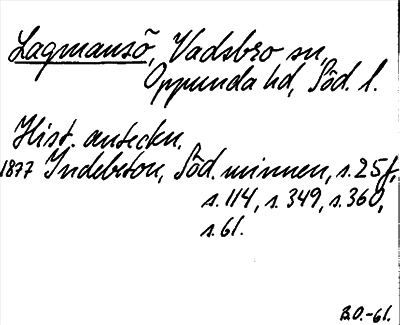 Lagmansö, Vadsbro sn,
Oppunda hd, Söd. l.
Hist. anteckn.
1877 Indebetou, Söd. minnen, s. 25f,
s. 114, s. 349, s. 360,
s. 61.
B.O.-61.